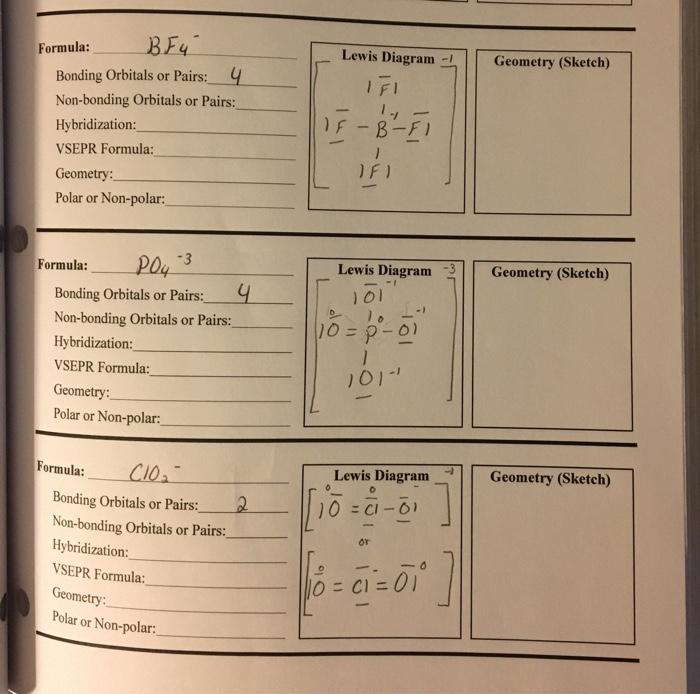 Formula: BF4-
Lewis Diagram -1
Geometry (Sketch)
Bonding Orbitals or Pairs: 4
Non-bonding Orbitals or Pairs:
Hybridization:
VSEPR Formula:
Geometry:
Polar or Non-polar:
|F|
|F - B -1 - F|
|F|
Formula: PO4 -3
Lewis Diagram -3
Geometry (Sketch)
Bonding Orbitals or Pairs: 4
Non-bonding Orbitals or Pairs:
Hybridization:
VSEPR Formula:
Geometry:
Polar or Non-polar:
|O| -1
|O 0 = P 0 - O| -1
|O| -1
Formula: ClO2-
Lewis Diagram -1
Geometry (Sketch)
Bonding Orbitals or Pairs: 2
Non-bonding Orbitals or Pairs:
Hybridization:
VSEPR Formula:
Geometry:
Polar or Non-polar:
[|O 0 = Cl 0 - O| -1]
or
[|O 0 = Cl - = O| 0]